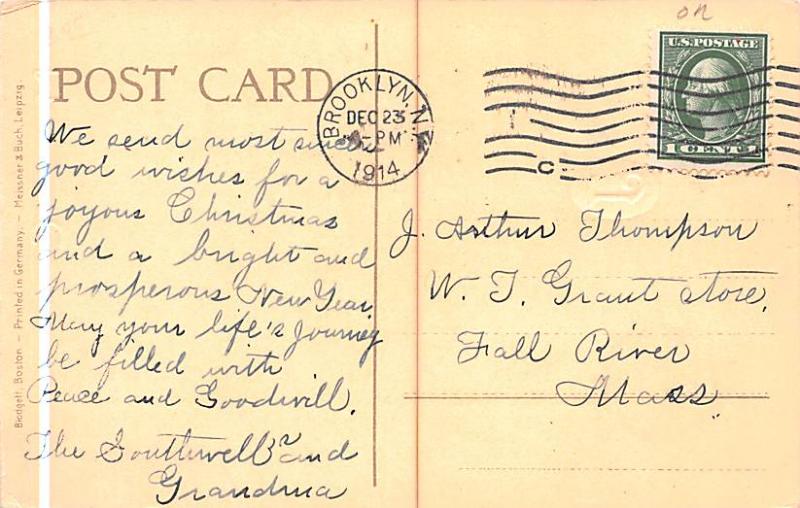 on
U.S. POSTAGE
1 CENT 1
POST CARD
BROOKLYN, N.Y.
DEC 23
-PM
1914
C
We send most sincere
good wishes for a
joyous Christmas
and a bright and
prosperous New Year.
May your life's Journey
be filled with
Peace and Goodwill.
The Southwells and
Grandma
J. Arthur Thompson
W. T. Grant store,
Fall River
Mass.
Blodgett, Boston. — Printed in Germany. — Meissner & Buch, Leipzig.